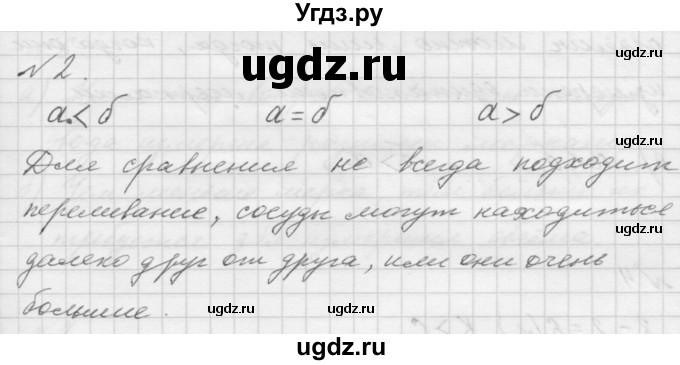 Угдз.ру
№2.
ugdz.ru
а < б   а = б   а > б
Для сравнения не всегда подходит
переливание, сосуды могут находиться
ugdz.ru
далеко друг от друга, или они очень
большие.
ugdz.ru ugdz.ru
ugdz.ru